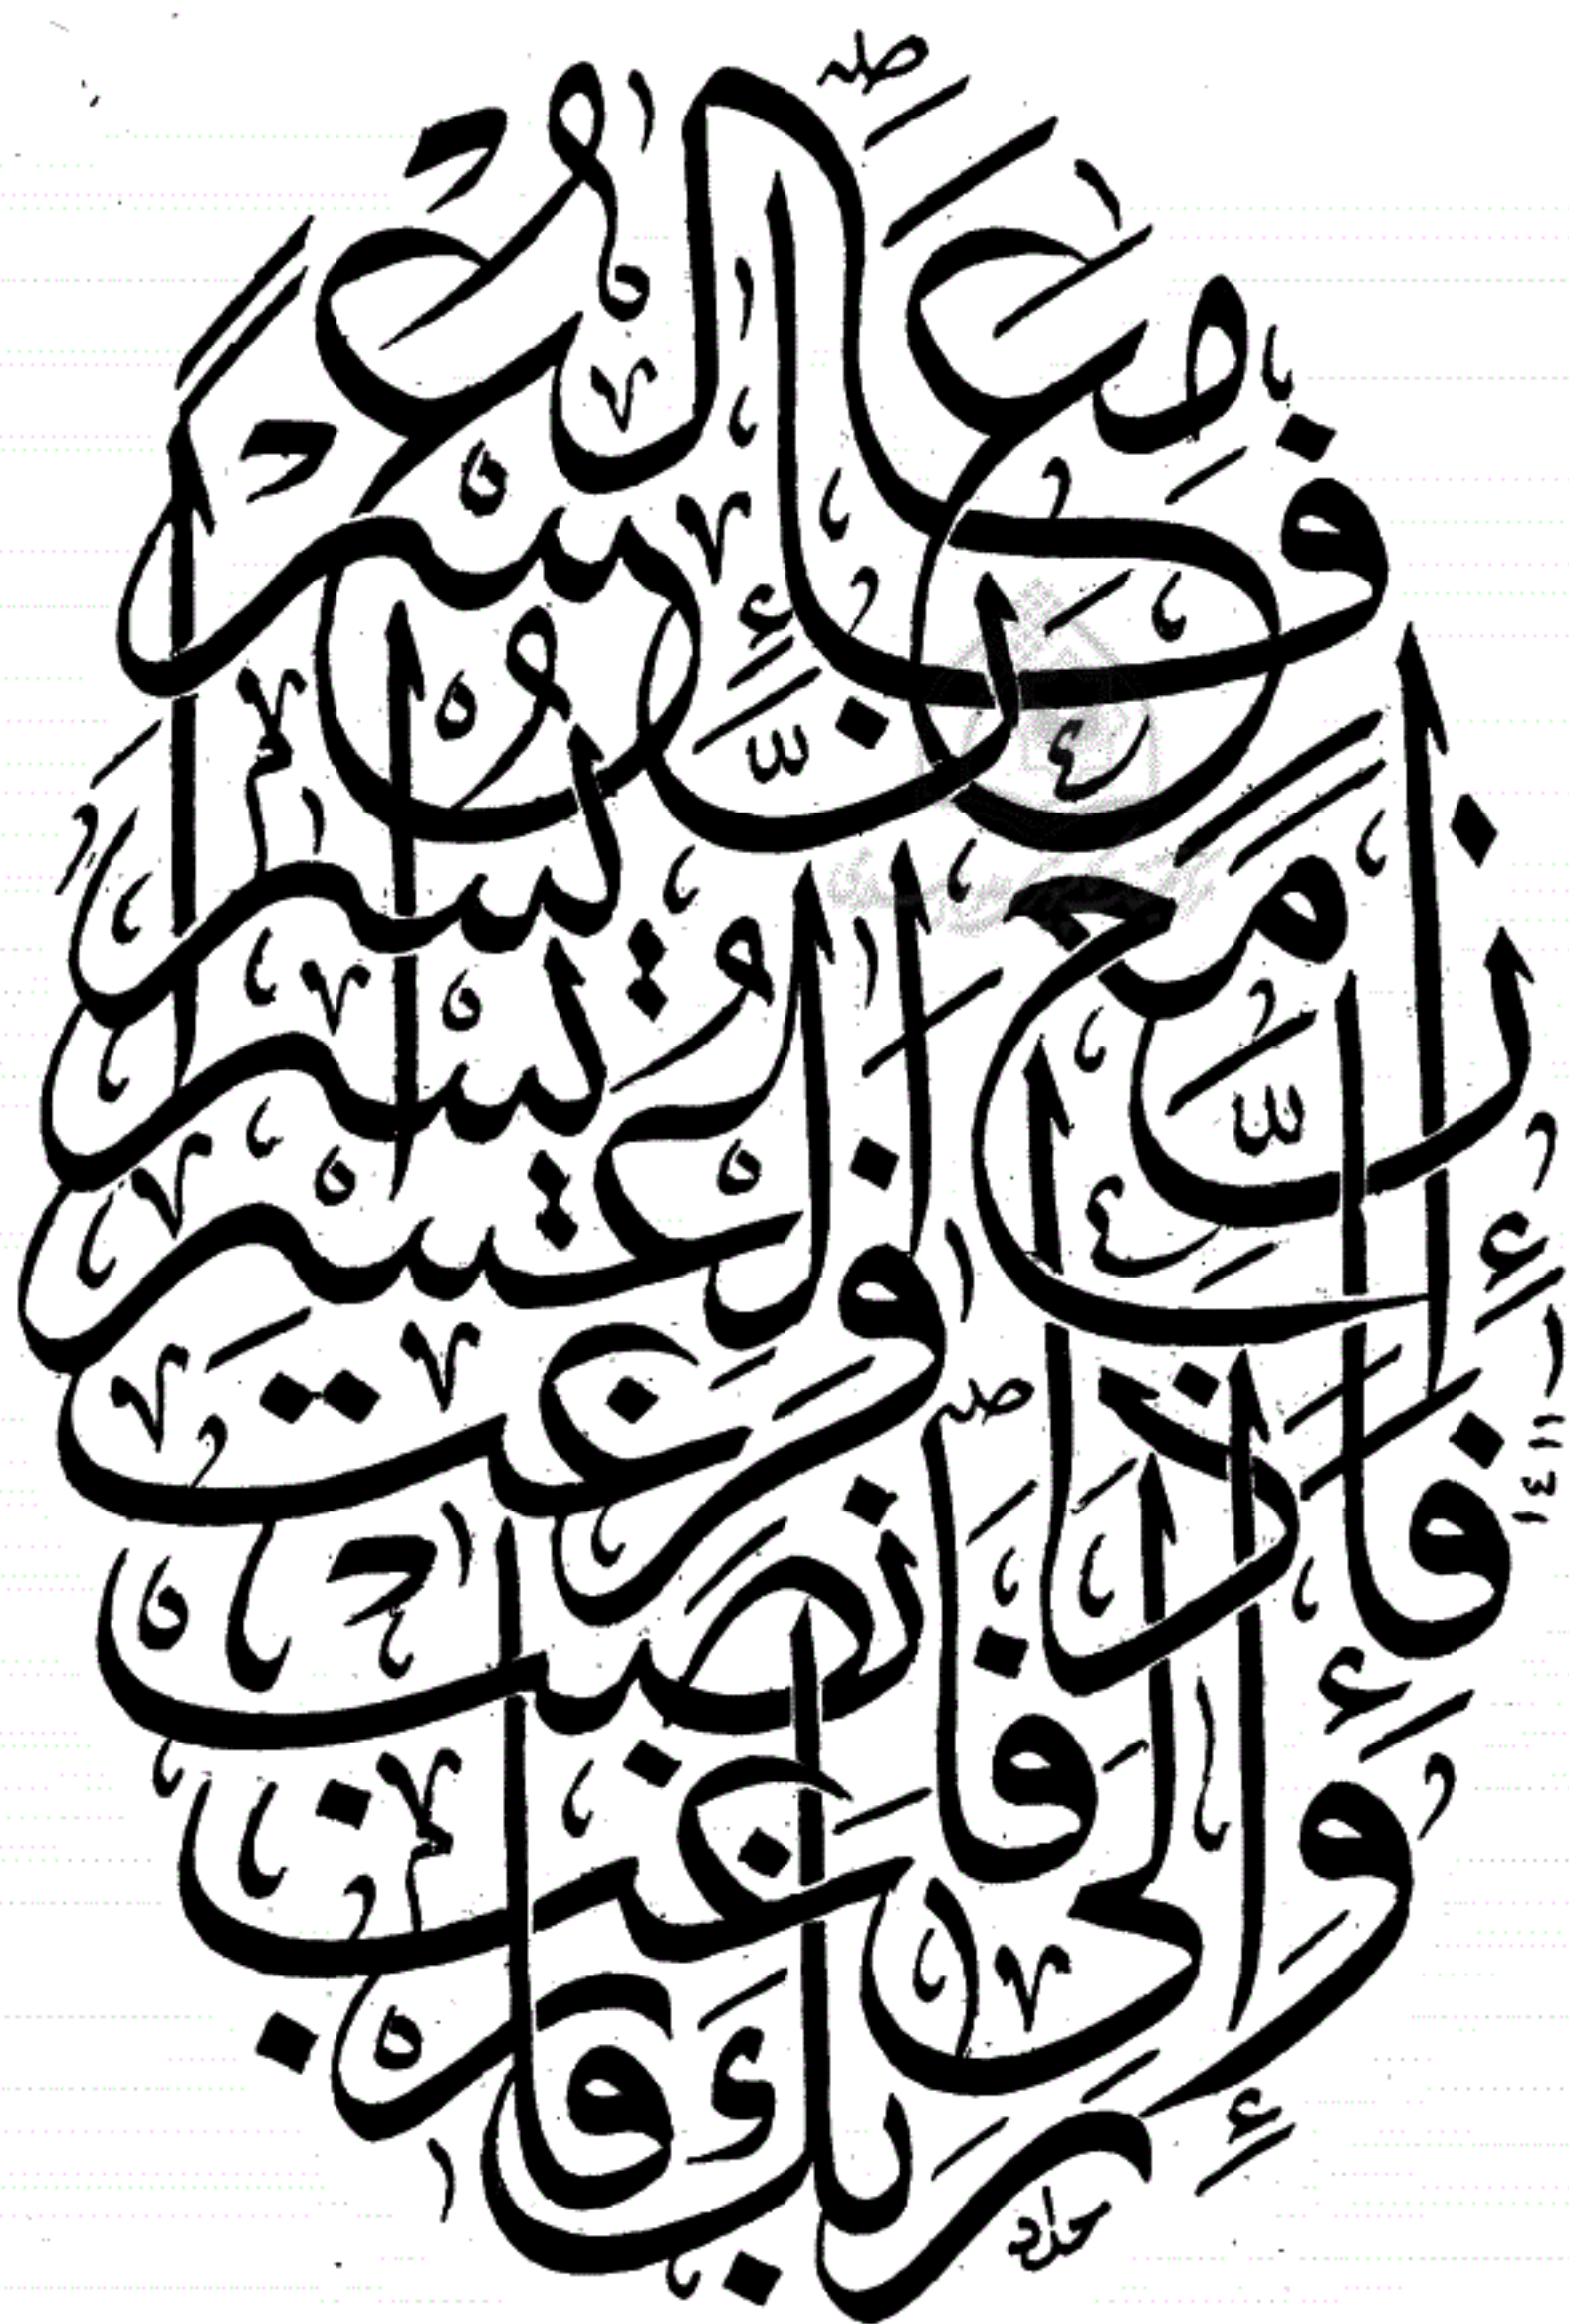 فَإِنَّ مَعَ الْعُسْرِ يُسْرًا
إِنَّ مَعَ الْعُسْرِ يُسْرًا
فَإِذَا فَرَغْتَ فَانْصَبْ
وَإِلَى رَبِّكَ فَارْغَبْ
حداد